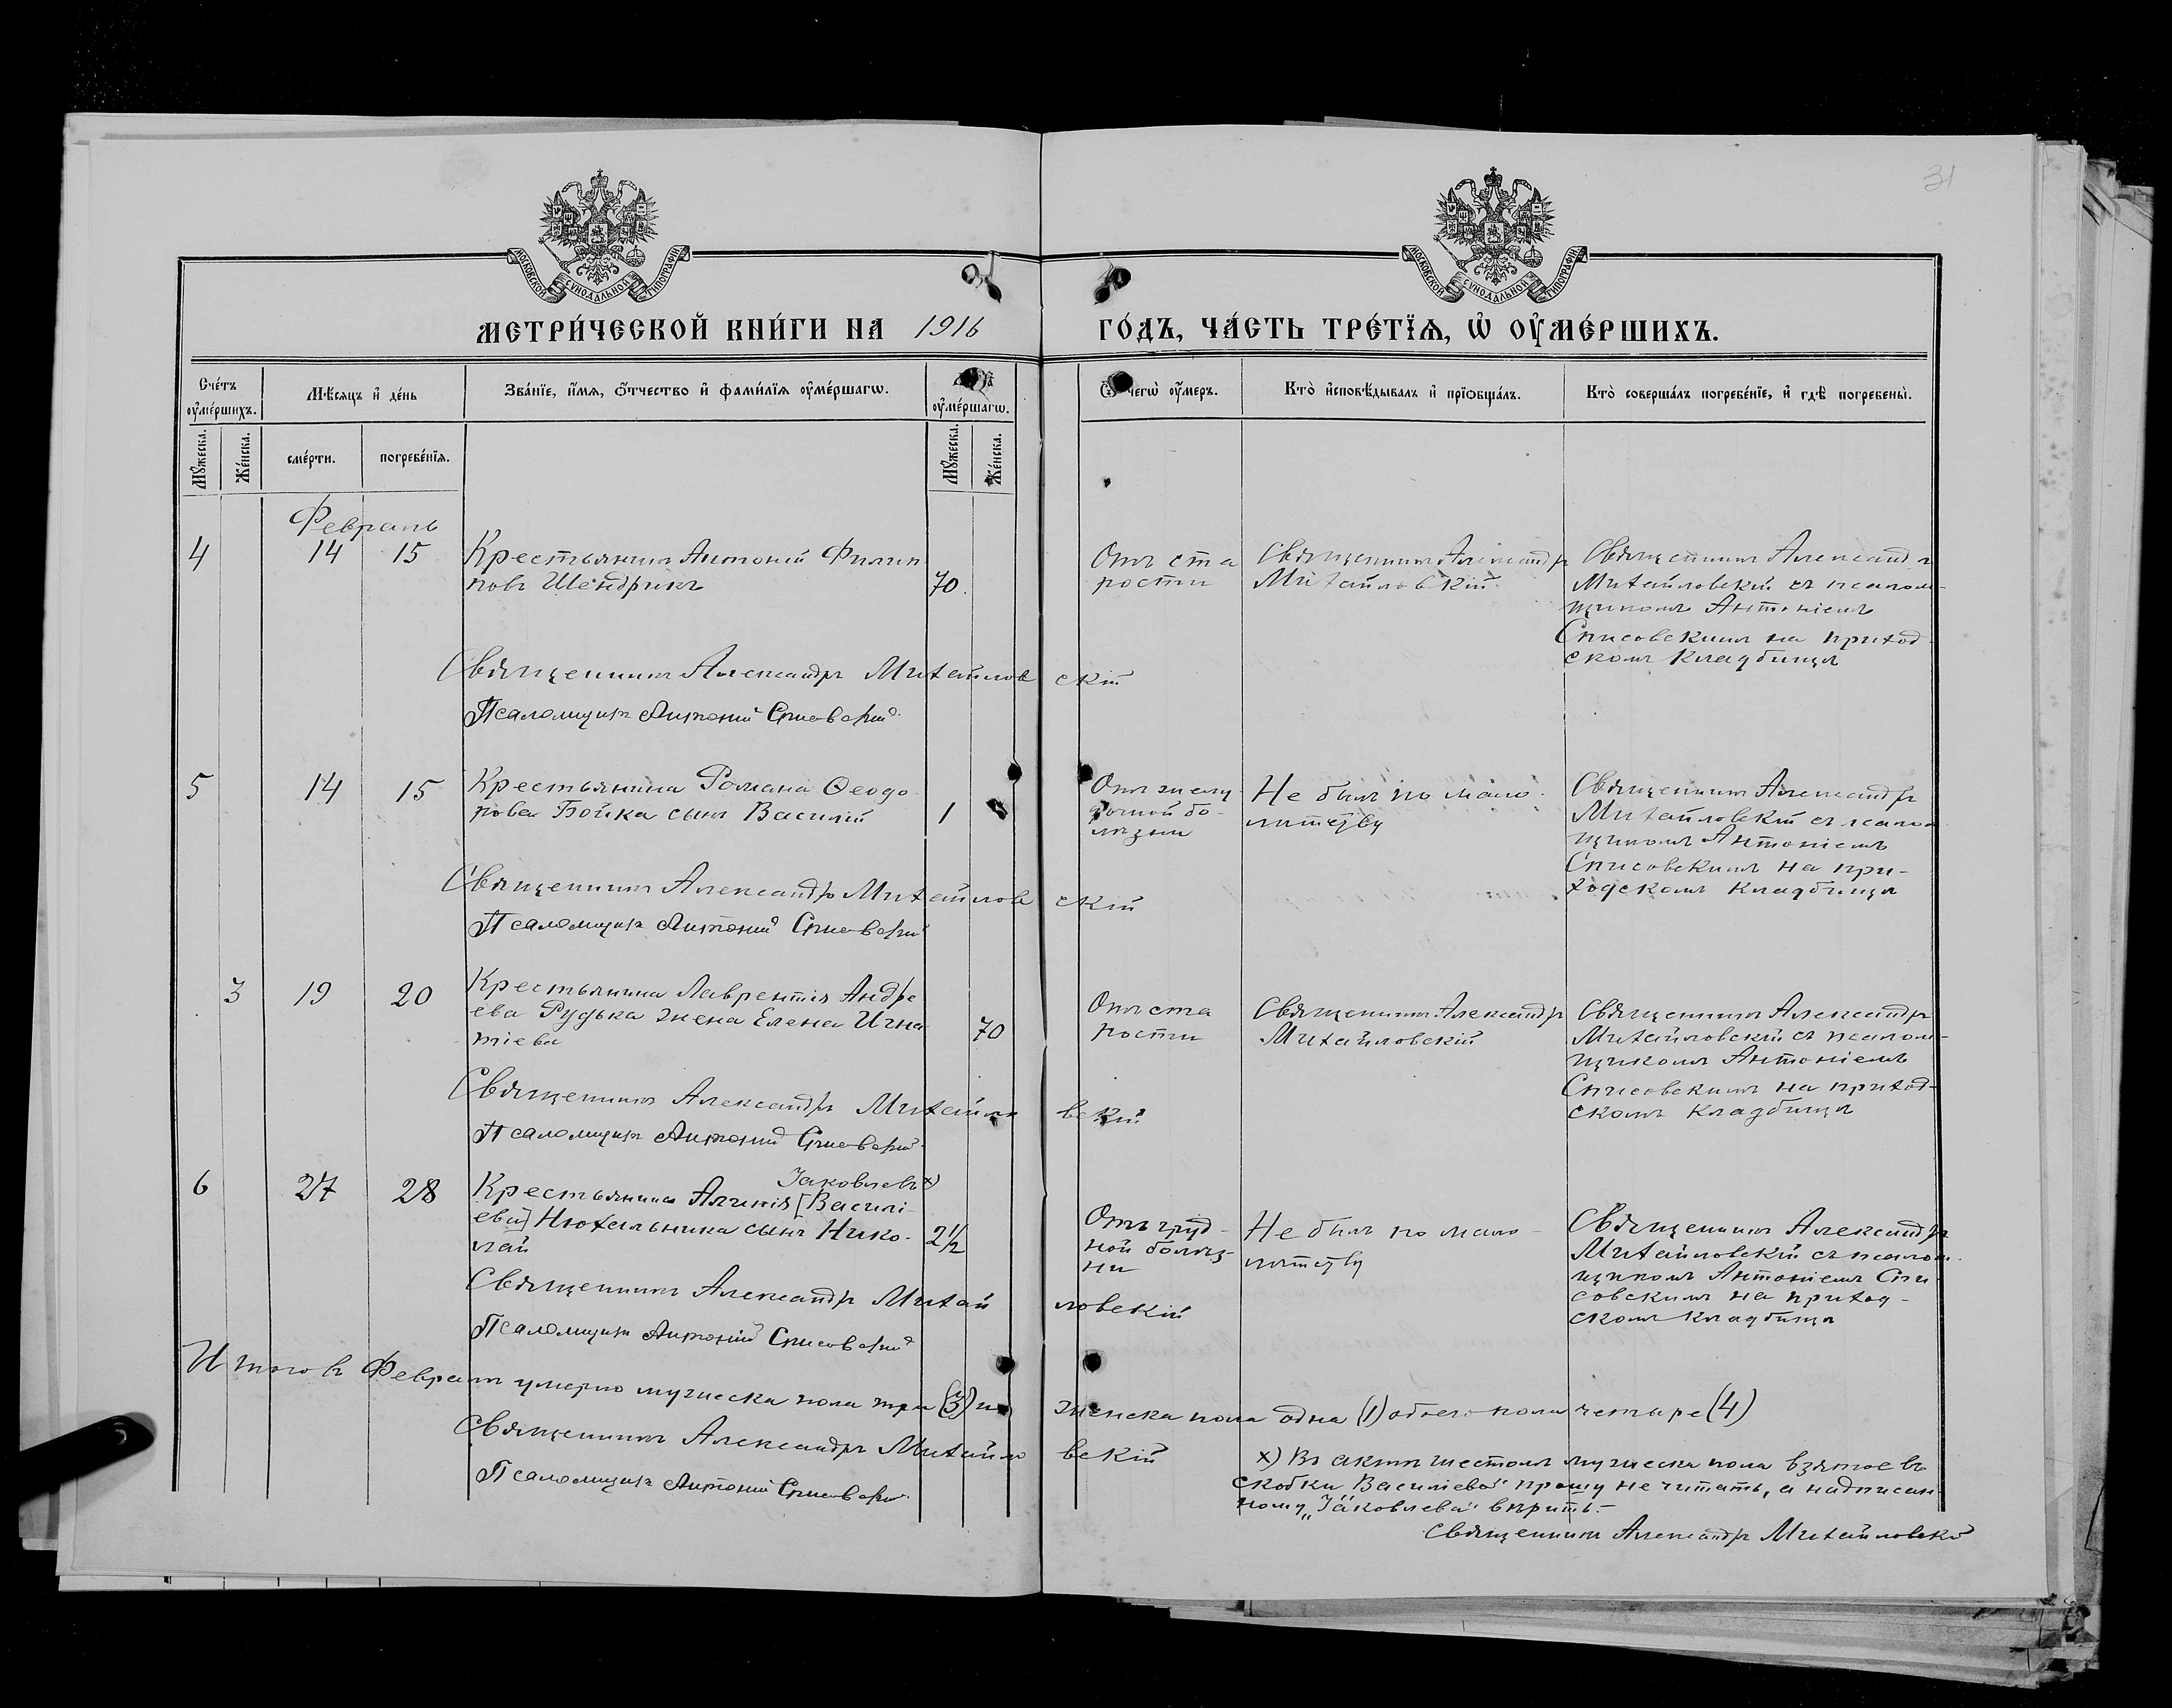 31
МОСКОВСКОЙ СѴНОДАЛЬНОЙ ТИПОГРАФІИ
МОСКОВСКОЙ СѴНОДАЛЬНОЙ ТИПОГРАФІИ
МЕТРИ́ЧЕСКОЙ КНИ́ГИ НА 1916 ГО́ДЪ, ЧА́СТЬ ТРЕ́ТЇѦ, Ѡ҆ ОУ҆МЕ́РШИХЪ.
Сче́тъ оу҆ме́ршихъ.
Мѣ́сяцъ и҆ де́нь
Зва́нїе, и҆́мѧ, ѻ҆́тчество и҆ фами́лїѧ оу҆ме́ршагѡ.
оу҆ме́ршагѡ.
Ѿ чегѡ̀ оу҆́меръ.
Кто̀ и҆сповѣ́дывалъ и҆ прїѡбща́лъ.
Кто̀ соверша́лъ погребе́нїе, и҆ гдѣ̀ погребены̀.
Мꙋ́жеска.
Же́нска.
сме́рти.
погребе́нїѧ.
Мꙋ́жеска.
Же́нска.
Февраль
4
14
15
Крестьянинъ Антоній Филип
повъ Шендрикъ
70
Отъ ста
рости
Священникъ Александръ
Михайловскій
Священникъ Александръ
Михайловскій съ псалом-
щикомъ Антоніемъ
Списовскимъ на приход-
скомъ кладбищѣ
Священникъ Александръ Михайловскій
Псаломщикъ Антоній Списовскій
5
14
15
Крестьянина Романа Ѳеодо
рова Бойка сынъ Василій
1
Отъ желу
дочной бо-
лѣзни
Не былъ по мало-
лѣтству
Священникъ Александръ
Михайловскій съ псалом
щикомъ Антоніемъ
Списовскимъ на при-
ходскомъ кладбищѣ
Священникъ Александръ Михайловскій
Псаломщикъ Антоній Списовскій
3
19
20
Крестьянина Лаврентія Андре
ева Рудька жена Елена Игна
тіева
70
Отъ ста
рости
Священникъ Александръ
Михайловскій
Священникъ Александръ
Михайловскій съ псалом-
щикомъ Антоніемъ
Списовскимъ на приход-
скомъ кладбищѣ
Священникъ Александръ Михайловскій
Псаломщикъ Антоній Списовскій
6
27
28
Іаковлевъ х)
Крестьянина [Василі-
ева] Нюхальника сынъ Нико-
лай
2½
Отъ груд-
ной болѣз-
ни
Не былъ по мало-
лѣтству
Священникъ Александръ
Михайловскій съ псалом-
щикомъ Антоніемъ Спи
совскимъ на приход-
скомъ кладбищѣ
Священникъ Александръ Михайловскій
Псаломщикъ Антоній Списовскій
Итого въ Февралѣ умерло мужеска пола три (3) и женска пола одна (1) обоего пола четыре (4)
Священникъ Александръ Михайловскій
Псаломщикъ Антоній Списовскій
х) Въ актѣ шестомъ мужеска пола взятое въ
скобки „Василіева" прошу не читать, а надписан-
ному „Іаковлева" вѣрить.-
Священникъ Александръ Михайловскій